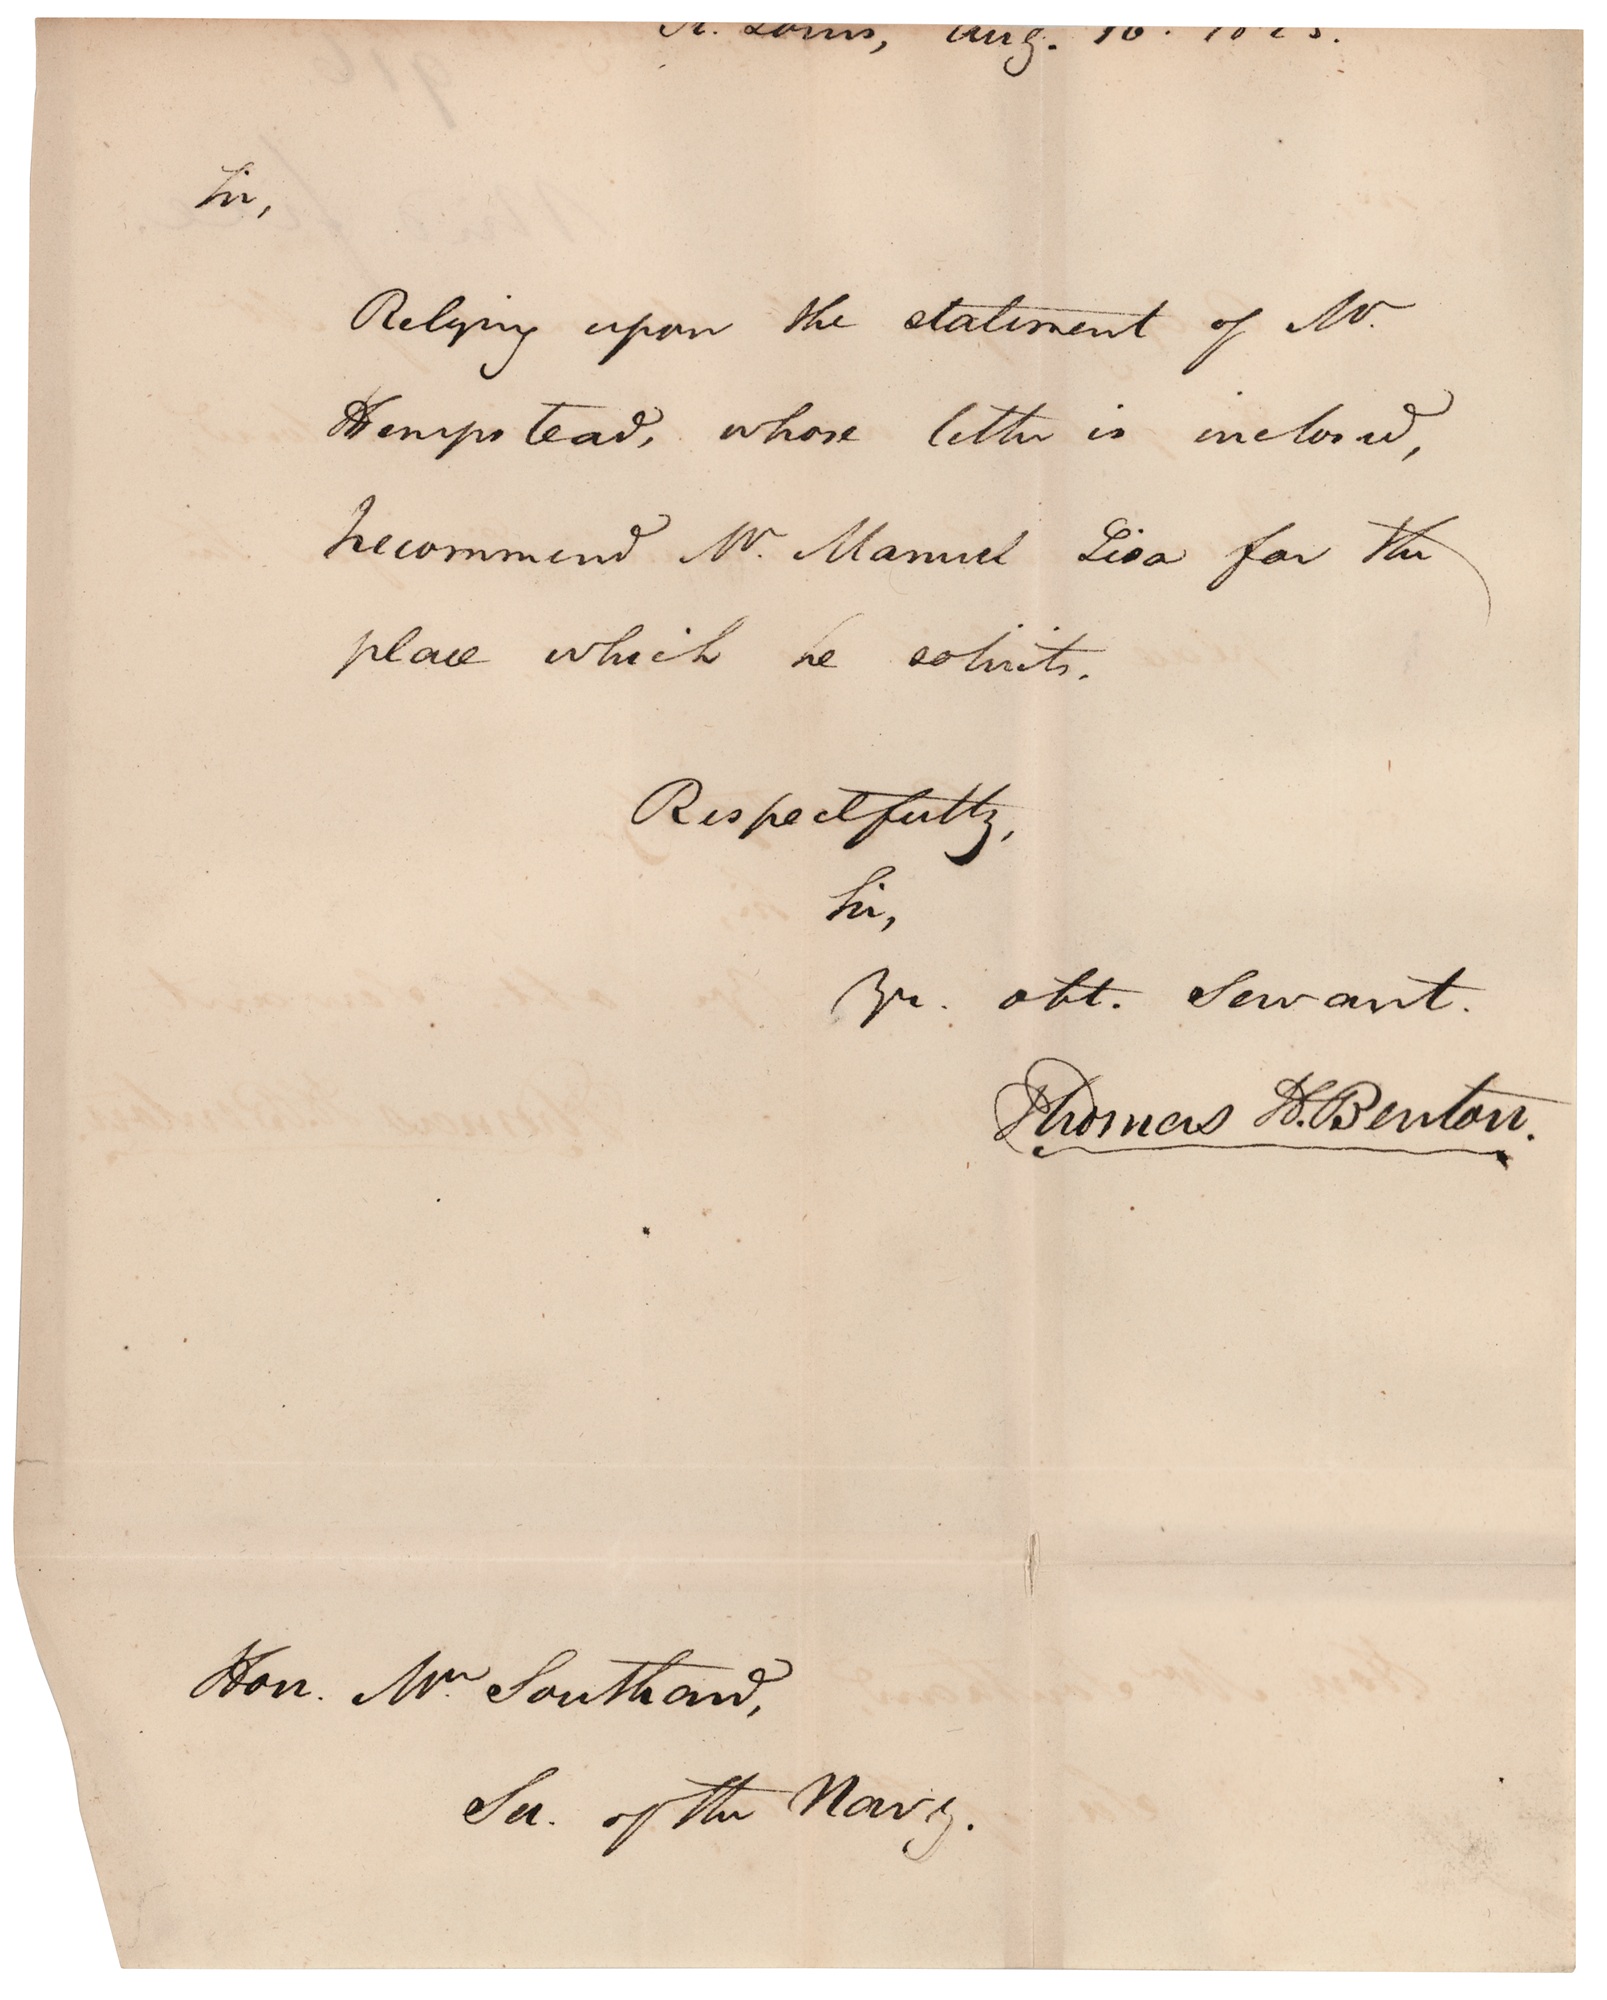 St. Louis, Aug. 16. 1825.
Sir,
Relying upon the statement of Mr.
Hempstead, whose letter is inclosed,
I recommend Mr. Manuel Lisa for the
place which he solicits.
Respectfully,
Sir,
Yr. obt. Servant.
Thomas H. Benton.
Hon. Mr. Southard,
Sec. of the Navy.